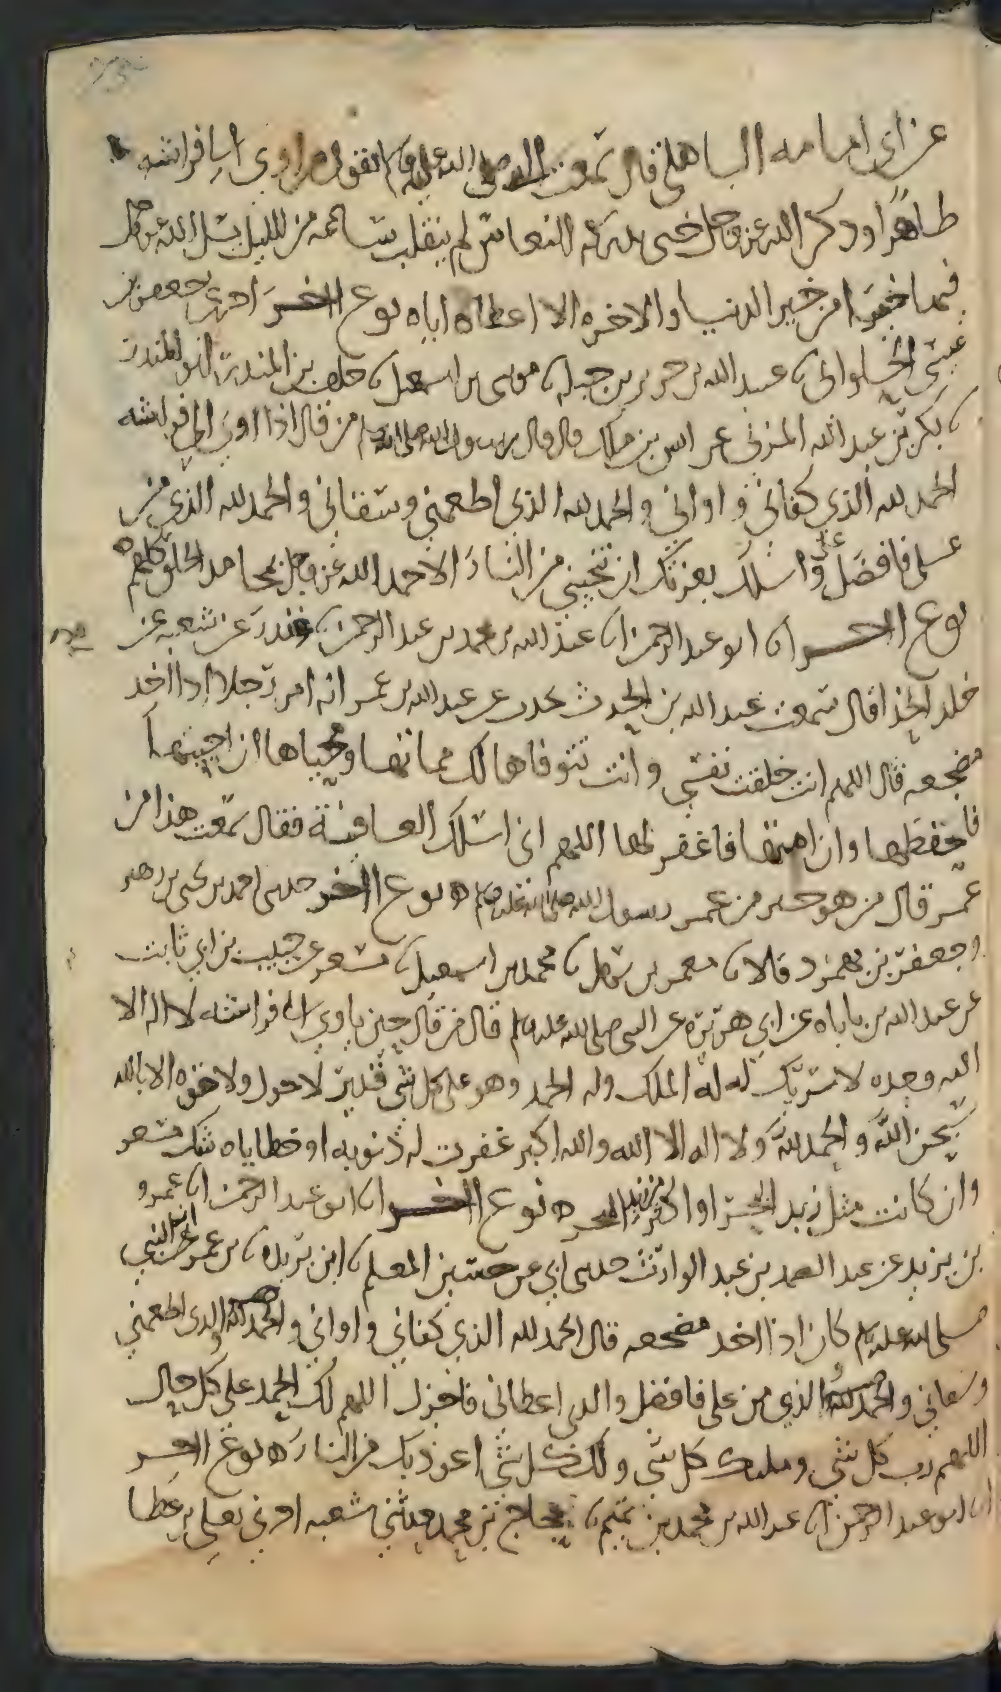 عن ابي امامه الباهلي قال سمعت النبي صلى الله عليه وسلم يقول من اوى الى فراشه
طاهرا وذكر الله عز وجل حتى يدركه النعاس لم ينقلب ساعه من الليل يسل الله عز وجل
فيها خيرا من خير الدنيا والاخره الا اعطاه اياه نوع اخر اخبرني جعفر بن
عيسى الحلواني عبد الله بن جرير بن جبله موسى بن اسمعيل خلف بن المنذر ابو المنذر
بكر بن عبد الله المزني عن انس بن ملك قال قال رسول الله صلى الله عليه وسلم من قال اذا اوى الى فراشه
الحمد لله الذي كفاني واواني والحمد لله الذي اطعمني وسقاني والحمد لله الذي من
علي فافضل واسلك بعزتك ان تنجيني من النار الا حمد الله عز وجل بمحامد الخلق كلهم
نوع اخر ابو عبد الرحمن عبد الله بن محمد بن عبد الرحمن غندر عن شعبه عن
خلد الحذا قال سمعت عبد الله بن الحرث يحدث عن عبد الله بن عمر انه امر رجلا اذا اخذ
مضجعه قال اللهم انت خلقت نفسي وانت تتوفاها لك مماتها ومحياها ان احييتها
فاحفظها وان امتها فاغفر لها اللهم اني اسلك العافية فقال سمعت هذا من
عمر قال من هو خير من عمر رسول الله صلى الله عليه وسلم نوع اخر حدثني احمد بن يحيى بن زهير
وجعفر بن قالا معمر بن سهل محمد بن اسمعيل مسعر عن حبيب بن ابي ثابت
عن عبد الله بن باباه عن ابي هريره عن النبي صلى الله عليه وسلم قال من قال حين ياوي الى فراشه لا اله الا
الله وحده لا شريك له له الملك وله الحمد وهو على كل شي قدير لا حول ولا قوه الا بالله
سبحن الله والحمد لله ولا اله الا الله والله اكبر غفرت له ذنوبه او خطاياه شك مسعر
وان كانت مثل زبد البحر او اكثر من زبد البحر نوع اخر ابو عبد الرحمن عمرو
بن يزيد عن عبد الصمد بن عبد الوارث حدثني ابي عن حسين المعلم ابن بريده بن عمر ان النبي
صلى الله عليه وسلم كان اذا اخذ مضجعه قال الحمد لله الذي كفاني واواني والحمد لله الذي اطعمني
وسقاني والحمد لله الذي من علي فافضل والذي اعطاني فاجزل اللهم لك الحمد على كل حال
اللهم رب كل شي ومليك كل شي ولك كل شي اعوذ بك من النار نوع اخر
ابو عبد الرحمن عبد الله بن محمد بن تميم حجاج بن محمد حدثني شعبه اخبرني يعلى بن عطا